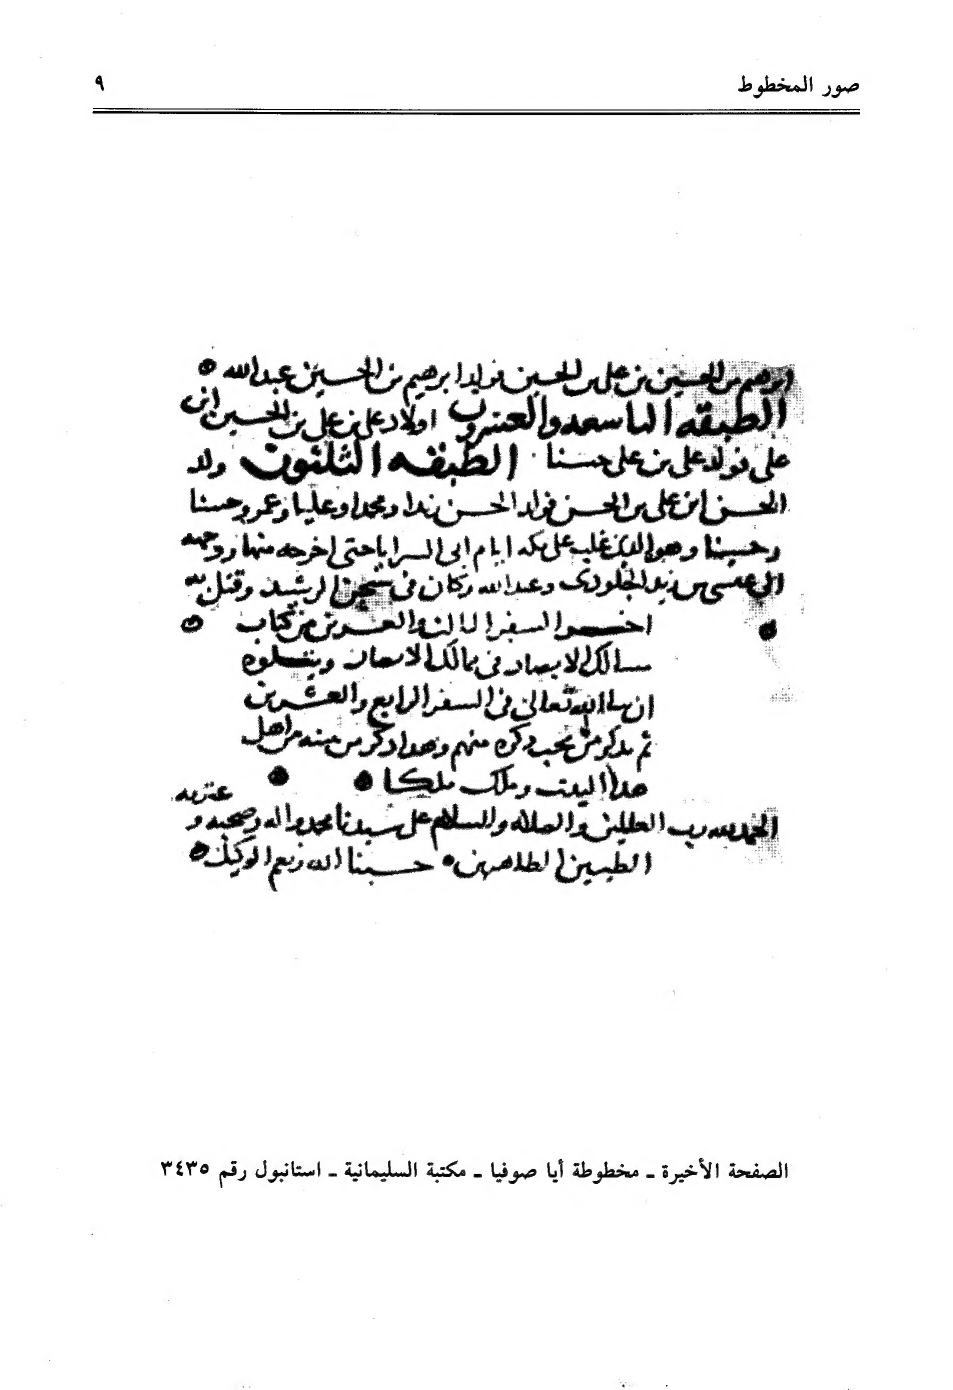 صور المخطوط
٩
ابرهيم بن الحسين بن على بن الحسين فولد ابرهيم بن الحسين عبد الله
الطبقه التاسعه والعشرون اولاد على بن على بن الحسين ابن
على فولد على بن على حسنا الطبقه الثلثون ولد
الحسن ابن على بن الحسن فولد الحسن زيدا ومحمدا وعليا وعمر وحسنا
وحسينا وهو الذى غلب على مكه ايام ابى السرايا حتى اخرجه منها
الى عيسى بن يزيد الجلودى وعبد الله وكان فى سجن الرشيد وقتل
اخر السفر الثالث والعشرين من كتاب
مسالك الابصار فى ممالك الامصار ويتلوه
ان شا الله تعالى فى السفر الرابع والعشرين
ثم نذكر من يجب ذكره منهم وهذا ذكر من من اهل
هذا البيت وملك ملكا
الحمد لله رب العلمين والصلاه والسلام على سيدنا محمد واله وصحبه و عترته
الطيبين الطاهرين حسبنا الله ونعم الوكيل
الصفحة الأخيرة ـ مخطوطة أيا صوفيا ـ مكتبة السليمانية ـ استانبول رقم ٣٤٣٥